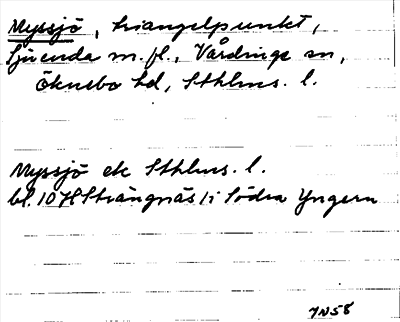 Myssjö, triangelpunkt,
Sjuenda m. fl., Vårdinge sn,
Öknebo hd, Sthlms. l.
Myssjö ek Sthlms. l.
bl. 10 H Strängnäs 1i Södra Yngern
7N58